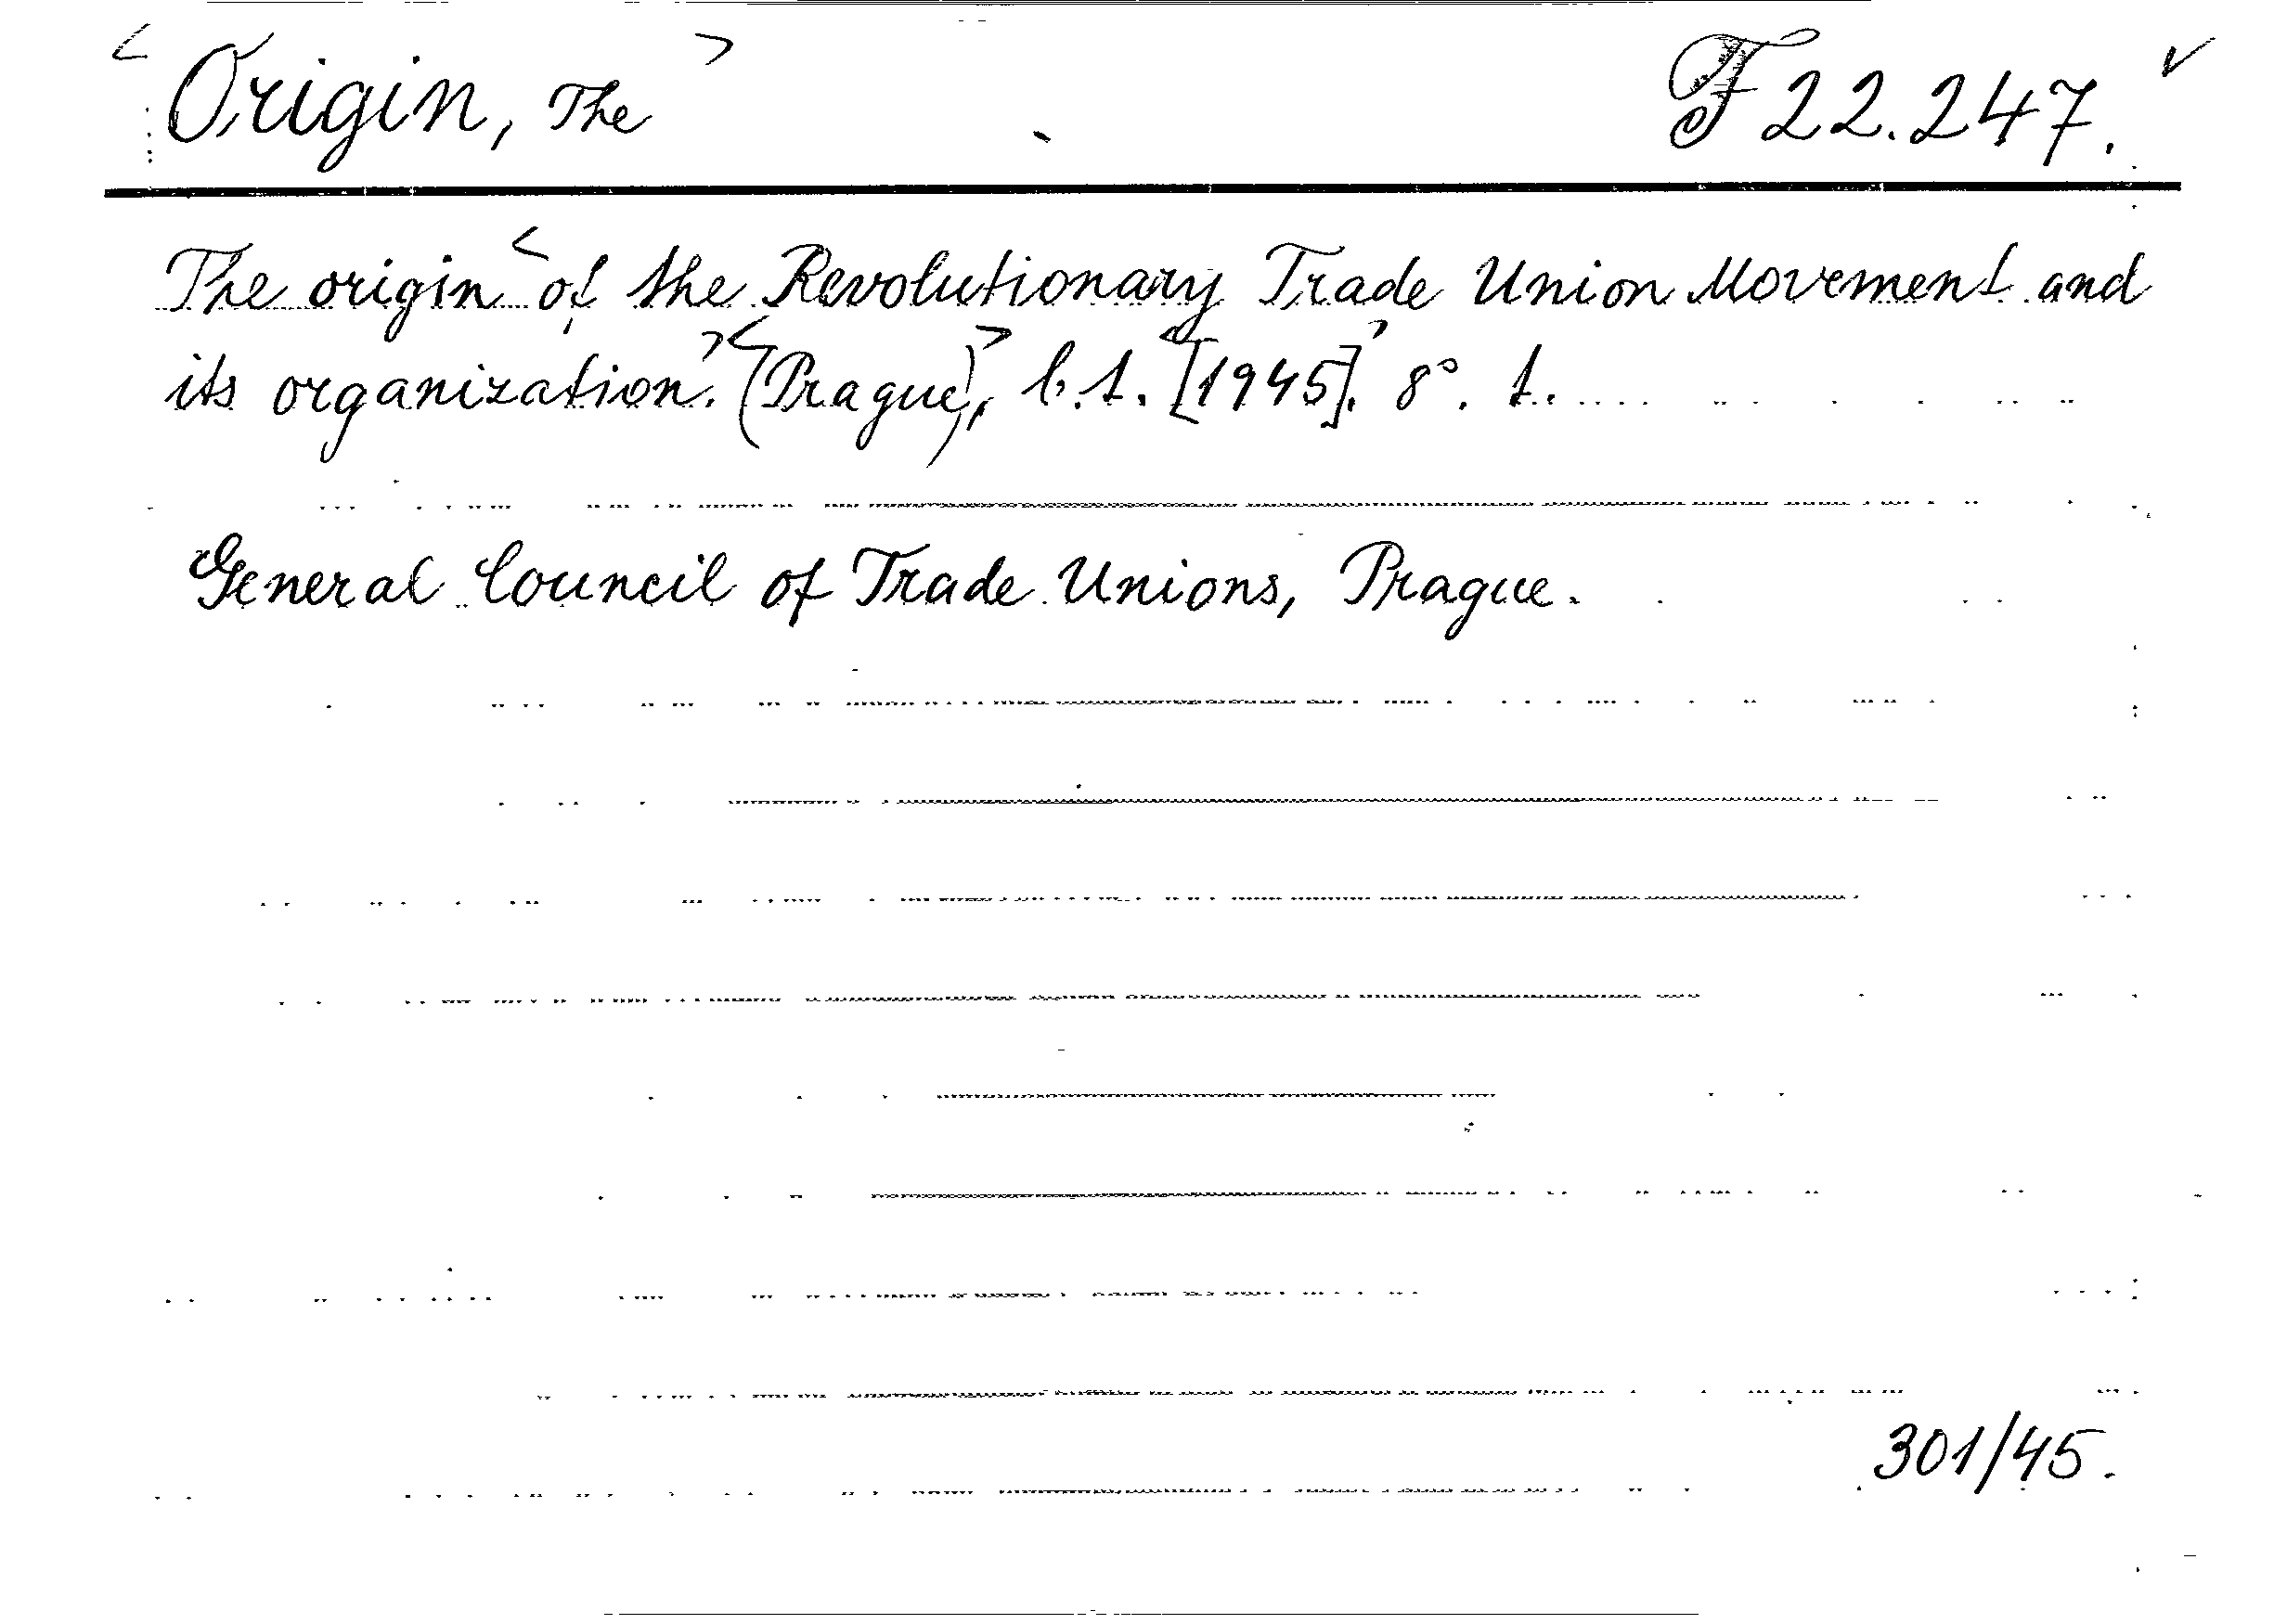 < Origin, The > F 22.247. ✓
The origin < of the Revolutionary Trade Union Movement and
its organization. > < (Prague), > b.t. < [1945]. > 8°. t.
General Council of Trade Unions, Prague.
301/45.